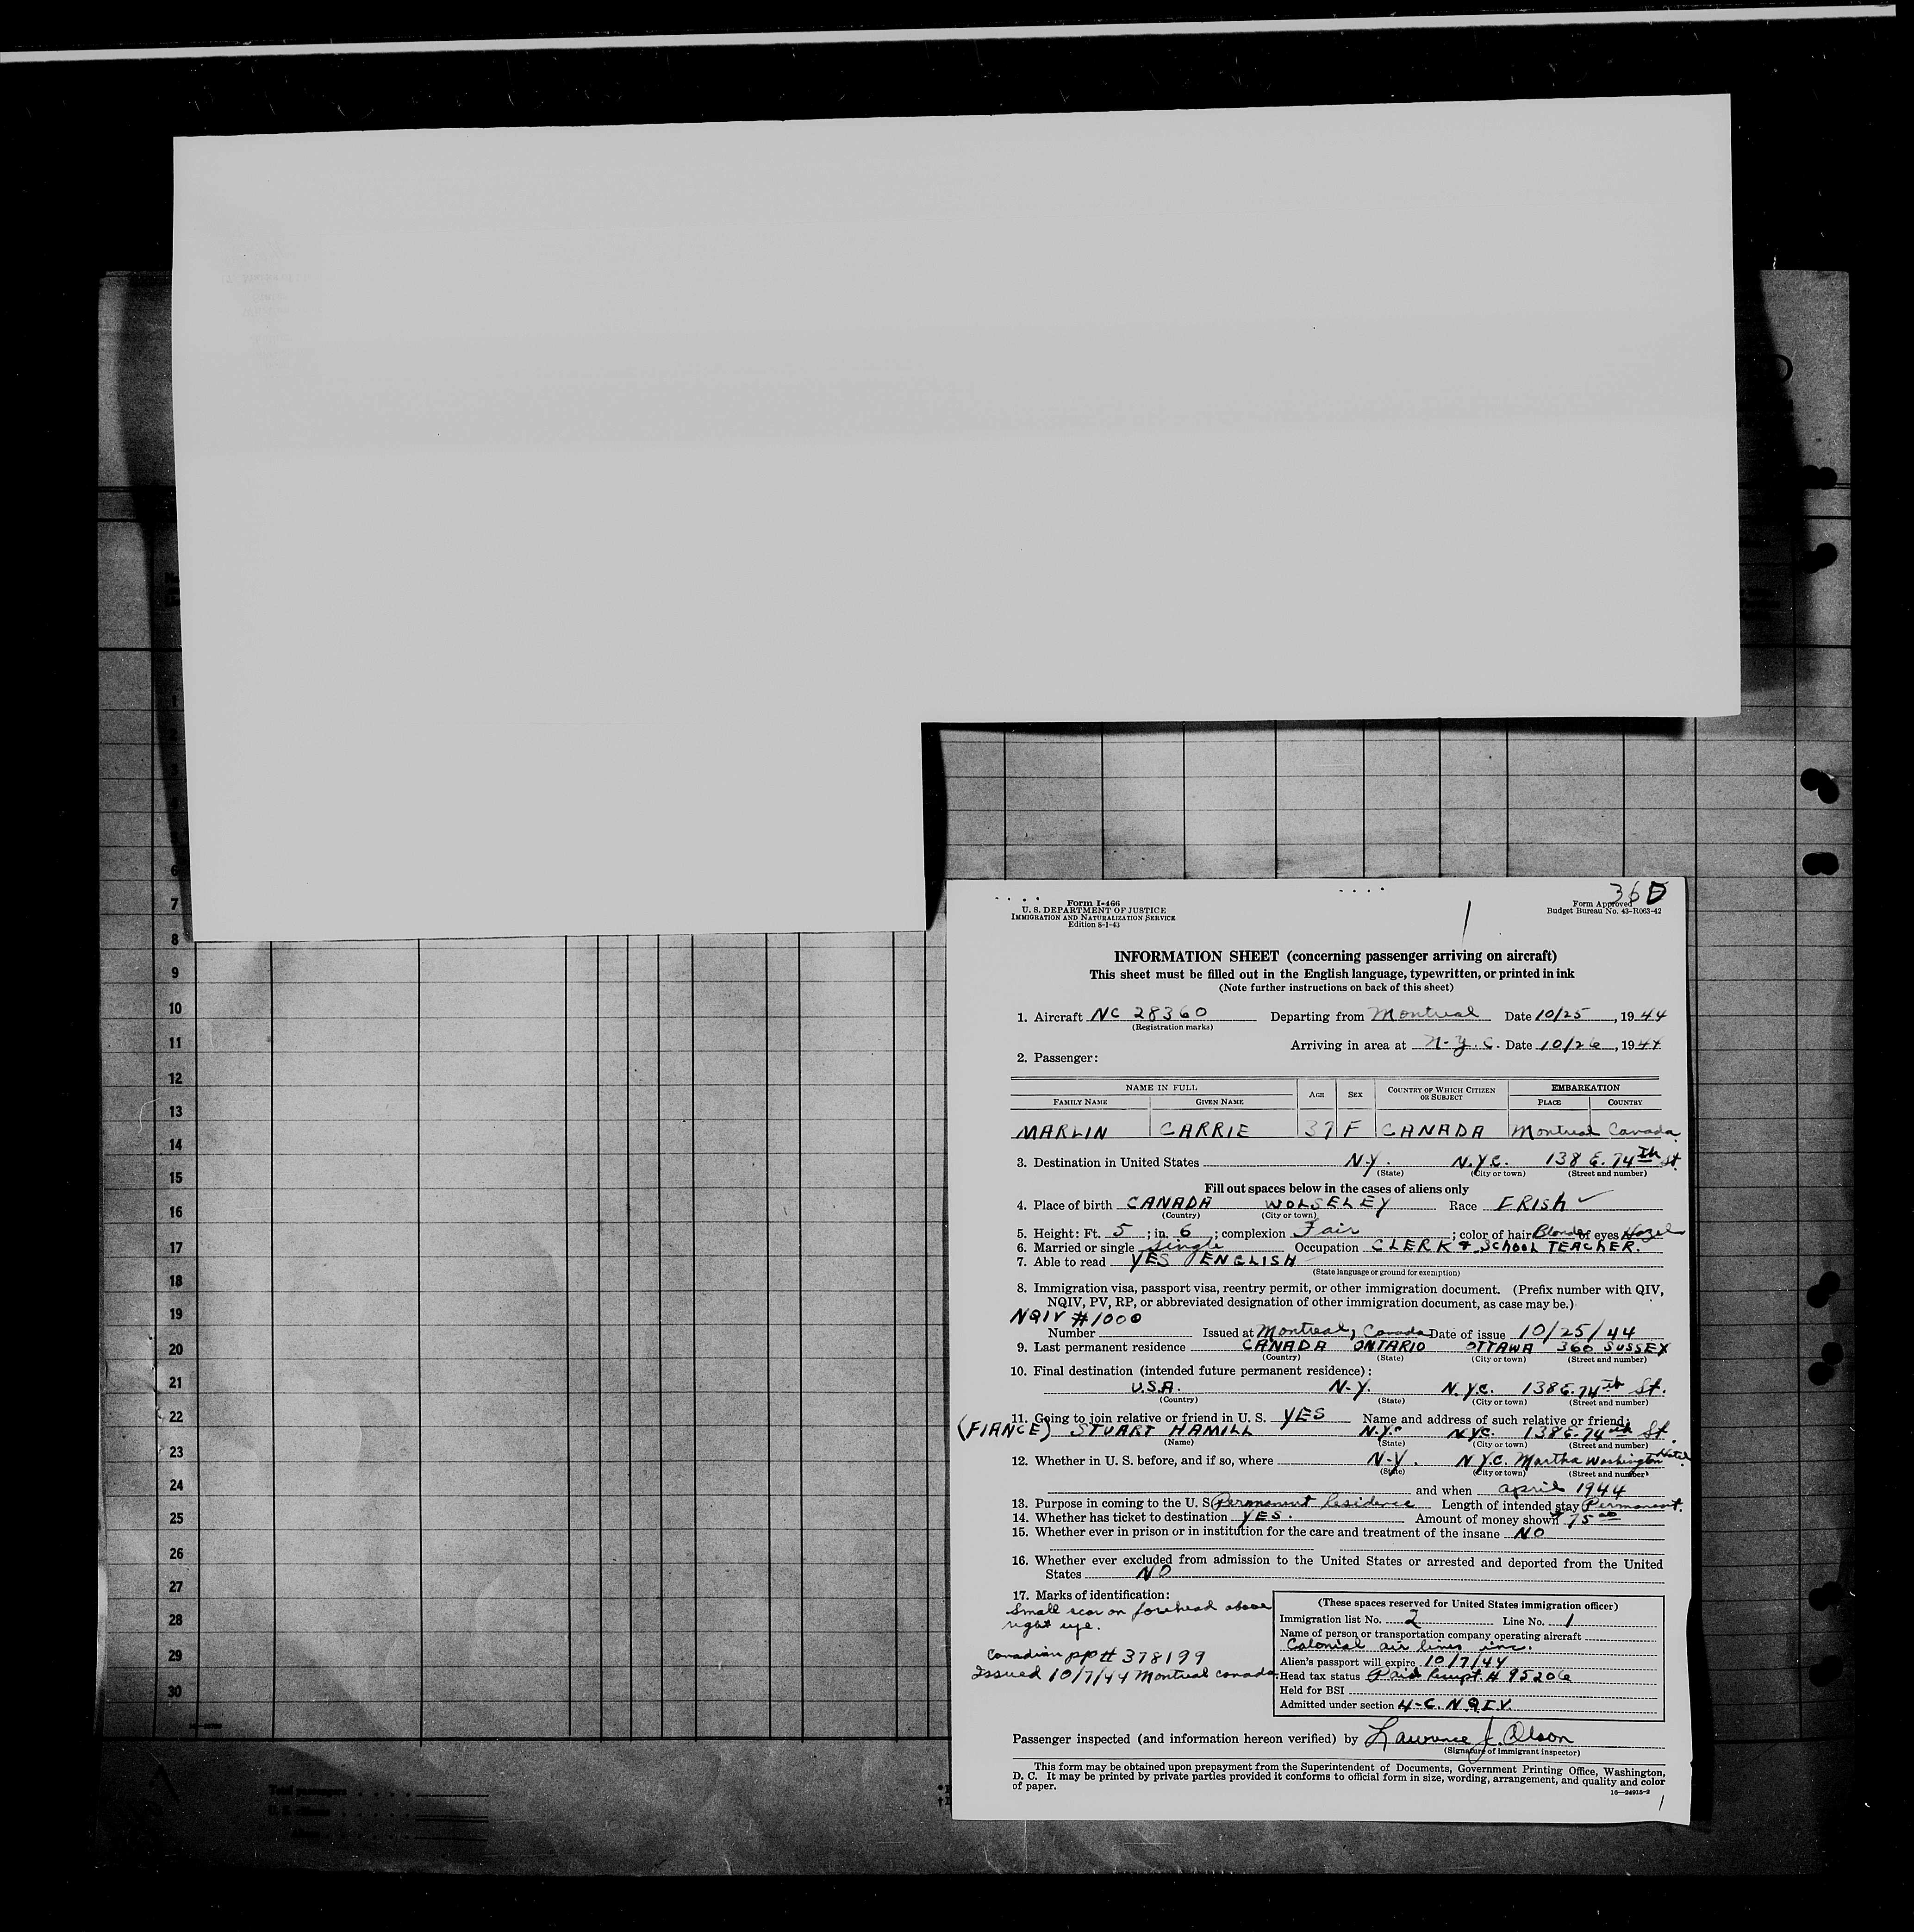 6
7
8
9
10
11
12
13
14
15
16
17
18
19
20
21
22
23
24
25
26
27
28
29
30
Total passengers
Form I-466
U. S. DEPARTMENT OF JUSTICE
IMMIGRATION AND NATURALIZATION SERVICE
Edition 8-1-43
1
36
Form Approved
Budget Bureau No. 43-R063-42
INFORMATION SHEET (concerning passenger arriving on aircraft)
This sheet must be filled out in the English language, typewritten, or printed in ink
(Note further instructions on back of this sheet)
1. Aircraft NC 28360 Departing from Montreal Date 10/25, 1944
(Registration marks)
Arriving in area at N.Y.C. Date 10/26, 1944
2. Passenger:
NAME IN FULL AGE SEX COUNTRY OF WHICH CITIZEN OR SUBJECT EMBARKATION
FAMILY NAME GIVEN NAME PLACE COUNTRY
MARLIN CARRIE 37 F CANADA Montreal Canada
3. Destination in United States N.Y. N.Y.C. 138 E. 74th St.
(State) (City or town) (Street and number)
Fill out spaces below in the cases of aliens only
4. Place of birth CANADA WOLSELEY Race IRISH ✓
(Country) (City or town)
5. Height: Ft. 5; in. 6; complexion Fair; color of hair Blonde of eyes Hazel
6. Married or single single Occupation CLERK & SCHOOL TEACHER.
7. Able to read YES ENGLISH
(State language or ground for exemption)
8. Immigration visa, passport visa, reentry permit, or other immigration document. (Prefix number with QIV,
NQIV, PV, RP, or abbreviated designation of other immigration document, as case may be.)
NQIV #1000
Number Issued at Montreal, Canada Date of issue 10/25/44
9. Last permanent residence CANADA ONTARIO OTTAWA 360 SUSSEX
(Country) (State) (City or town) (Street and number)
10. Final destination (intended future permanent residence):
U.S.A. N.Y. N.Y.C. 138 E. 74th St.
(Country) (State) (City or town) (Street and number)
11. Going to join relative or friend in U. S. YES Name and address of such relative or friend:
(FIANCE) STUART HAMILL N.Y. N.Y.C. 138 E. 74th St.
(Name) (State) (City or town) (Street and number)
12. Whether in U. S. before, and if so, where N.Y. N.Y.C. Martha Washington Hotel
(State) (City or town) (Street and number)
and when april 1944
13. Purpose in coming to the U. S. Permanent Residence Length of intended stay Permanent.
14. Whether has ticket to destination YES. Amount of money shown $75.00
15. Whether ever in prison or in institution for the care and treatment of the insane NO
16. Whether ever excluded from admission to the United States or arrested and deported from the United
States NO
17. Marks of identification:
Small scar on forehead above
right eye.
Canadian pp # 378199
Issued 10/7/44 Montreal canada.
(These spaces reserved for United States immigration officer)
Immigration list No. 2 Line No. 1
Name of person or transportation company operating aircraft
Colonial air lines inc.
Alien's passport will expire 10/7/44
Head tax status Paid Receipt # 95206
Held for BSI
Admitted under section 4-C. N.Q.I.V.
Passenger inspected (and information hereon verified) by Lawrence J. Olson
(Signature of immigrant inspector)
This form may be obtained upon prepayment from the Superintendent of Documents, Government Printing Office, Washington,
D. C. It may be printed by private parties provided it conforms to official form in size, wording, arrangement, and quality and color
of paper.
16—24915-2
1